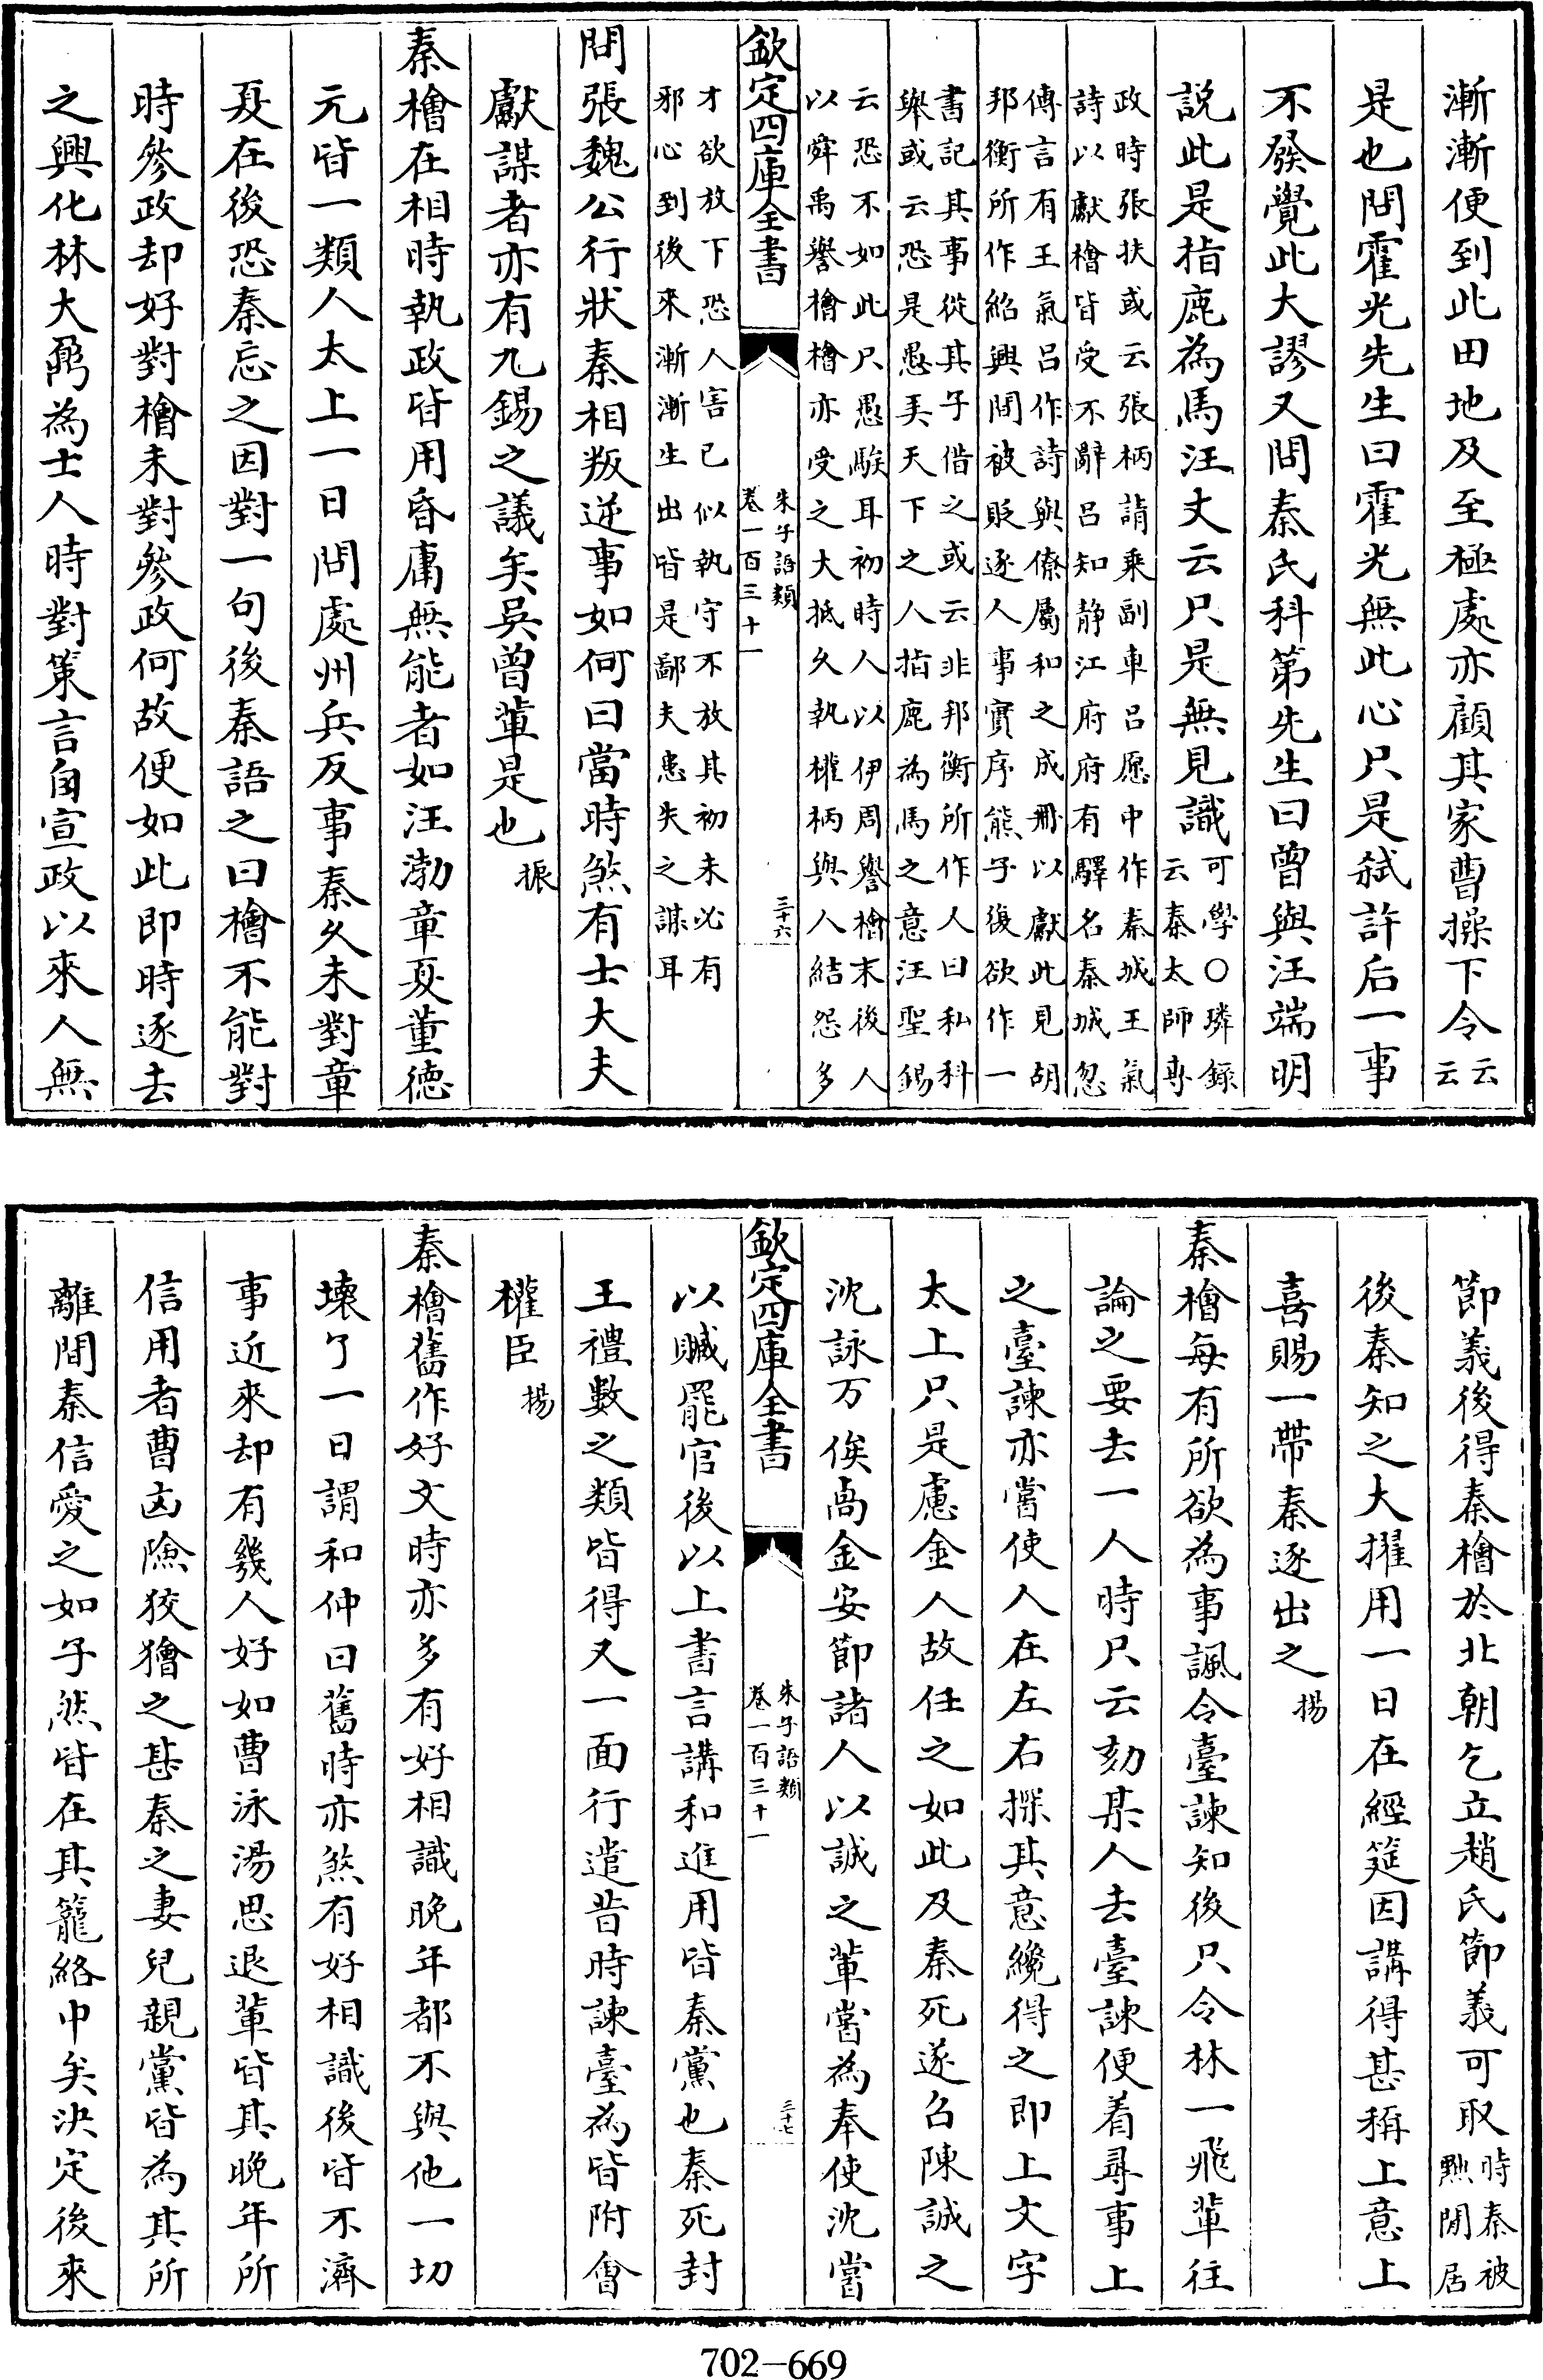 漸漸便到此田地及至極處亦顧其家曹操下令云云
是也問霍光先生曰霍光無此心只是弑許后一事
不發覺此大謬又問秦氏科第先生曰曾與汪端明
說此是指鹿為馬汪丈云只是無見識可學○璘録云秦太師專
政時張扶或云張柄請乘副車呂愿中作秦城王氣詩以獻檜皆受不辭呂知静江府府有驛名秦城忽
傳言有王氣呂作詩與僚屬和之成冊以獻此見胡邦衡所作紹興間被貶逐人事實序熊子復欲作一
書記其事從其子借之或云非邦衡所作人曰私科舉或云恐是愚美天下之人指鹿為馬之意汪聖錫
云恐不如此只愚騃耳初時人以伊周譽檜末後人以舜禹譽檜檜亦受之大抵久執權柄與人結怨多
欽定四庫全書
朱子語類
卷一百三十一
三十六
才欲放下恐人害己似執守不放其初未必有邪心到後來漸漸生出皆是鄙夫患失之謀耳
問張魏公行狀秦相叛逆事如何曰當時煞有士大夫
獻謀者亦有九錫之議矣吳曾輩是也振
秦檜在相時執政皆用昏庸無能者如汪渤章夏董德
元皆一類人太上一日問處州兵反事秦久未對章
夏在後恐秦忘之因對一句後秦語之曰檜不能對
時參政却好對檜未對參政何故便如此即時逐去
之興化林大鼐為士人時對策言自宣政以來人無
節義後得秦檜於北朝乞立趙氏節義可取時秦被黜閒居
後秦知之大擢用一日在經筵因講得甚稱上意上
喜賜一帶秦逐出之揚
秦檜每有所欲為事諷令臺諫知後只令林一飛輩往
論之要去一人時只云劾某人去臺諫便着尋事上
之臺諫亦嘗使人在左右探其意纔得之即上文字
太上只是慮金人故任之如此及秦死遂召陳誠之
沈詠万俟卨金安節諸人以誠之輩嘗為奉使沈嘗
欽定四庫全書
朱子語類
卷一百三十一
三十七
以贓罷官後以上書言講和進用皆秦黨也秦死封
王禮數之類皆得又一面行遣昔時諫臺為皆附會
權臣揚
秦檜舊作好文時亦多有好相識晚年都不與他一切
壞了一日謂和仲曰舊時亦煞有好相識後皆不濟
事近來却有幾人好如曹泳湯思退輩皆其晚年所
信用者曹凶險狡獪之甚秦之妻兒親黨皆為其所
離間秦信愛之如子然皆在其籠絡中矣決定後來
702-669